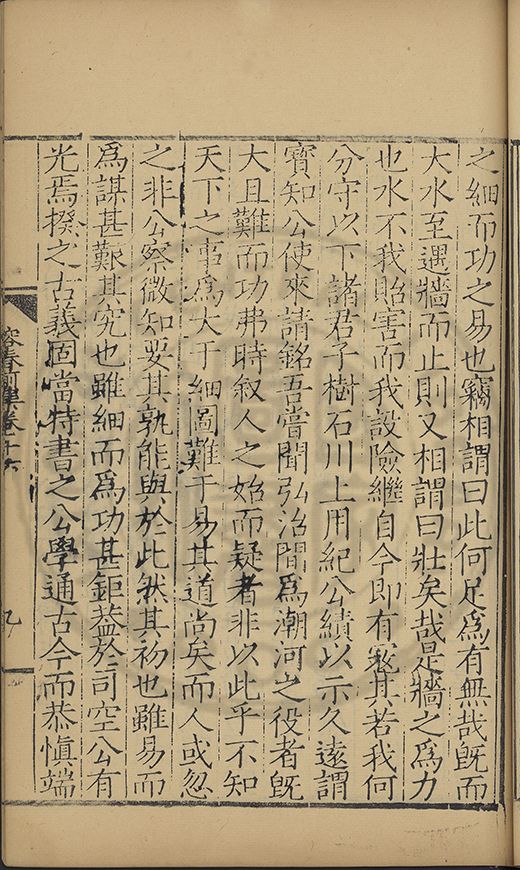 之細而功之易也竊相謂曰此何足爲有無哉旣而
大水至遇牆而止則又相謂曰壯矣哉是牆之爲力
也水不我貽害而我設險繼自今即有寇其若我何
分守以下諸君子樹石川上用紀公績以示久遠謂
寶知公使來請銘吾嘗聞弘治間爲潮河之役者旣
大且難而功弗時叙人之始而疑者非以此乎不知
天下之事爲大于細圖難于易其道尚矣而人或忽
之非公察微知要其孰能與於此然其初也雖易而
爲謀甚艱其究也雖細而爲功甚鉅葢於司空公有
光焉揆之古義固當特書之公學通古今而恭愼端
容春前集卷十六
九